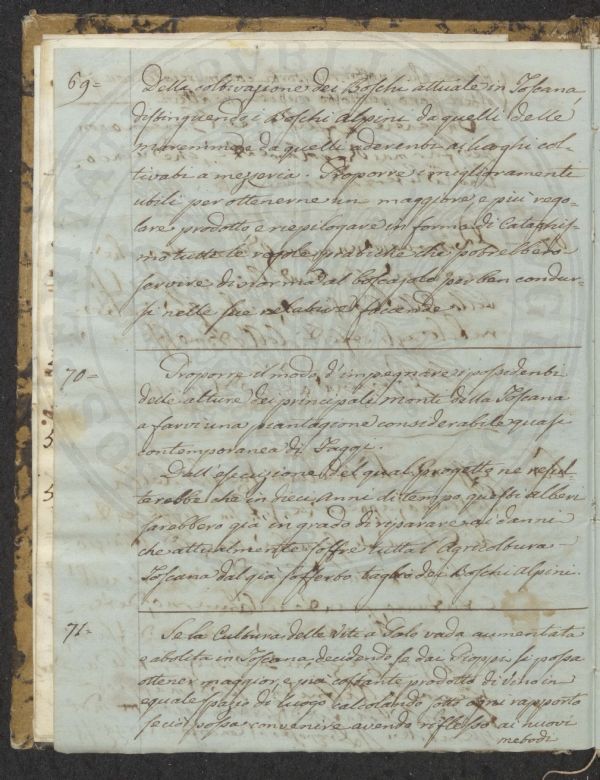 69=
Della coltivazione dei Boschi attuale in Toscana,
distinguendo i Boschi Alpini da quelli delle
maremme e da quelli aderenti ai luoghi col-
tivati a mezzeria. Proporre i miglioramenti
utili per ottenerne un maggiore e più rego-
lare prodotto e riepilogare in forma di Catechis-
mo tutte le regole pratiche che potrebbero
servire di norma al boscajolo per ben condur-
si nelle sue relative faccende
70=
Proporre il modo d'impegnare i possidenti
delle alture dei principali monti della Toscana
a farvi una piantagione considerabile quasi
contemporanea di Faggi.
Dall'esecuzione del qual Progetto ne resul-
terebbe che in dieci anni di tempo questi alberi
sarebbero già in grado di riparare ai danni
che attualmente soffre tutta l'Agricoltura
Toscana dal già sofferto taglio dei Boschi Alpini.
71=
Se la Cultura delle Viti a Palo vada aumentata
e abolita in Toscana decidendo se dai Pioppi si possa
ottener maggior e più costante prodotto di vino in
eguale spazio di luogo calcolando sotto ogni rapporto
se ciò possa convenire avendo riflesso ai nuovi
metodi